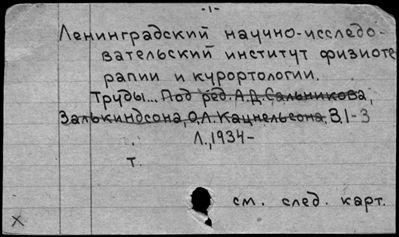 -1-
Ленинградский научно-исследо-
вательский институт физиоте
рапии и курортологии.
Труды... Под ред. А.Д. Сальникова,
Залькиндсона, О.Л. Кацнельсона, В.1-3
Л., 1934-
т.
см. след. карт.
x